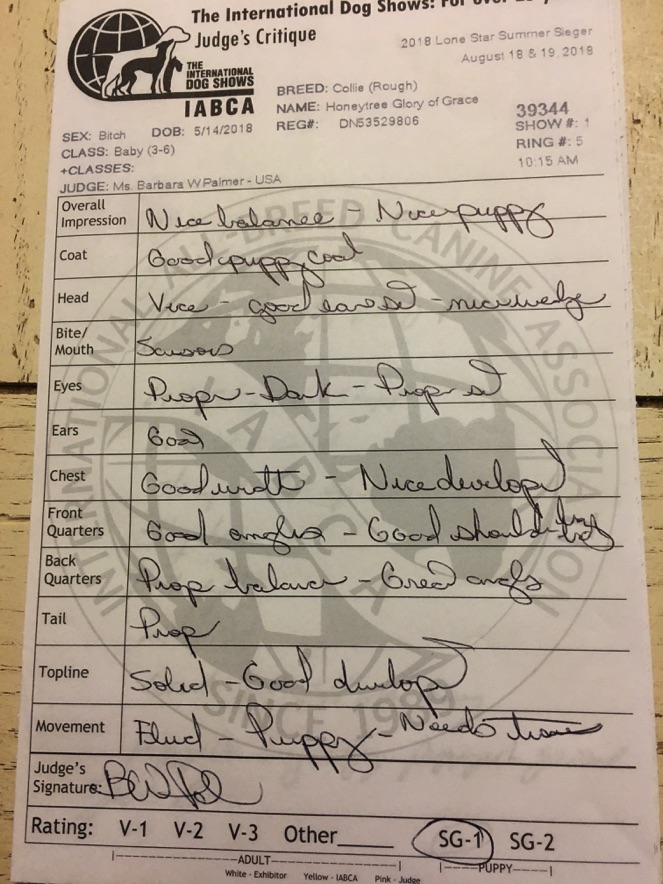 The International Dog Shows: For over
Judge's Critique
2018 Lone Star Summer Sieger
August 18 & 19, 2018
THE
INTERNATIONAL
DOG SHOWS
IABCA
BREED: Collie (Rough)
NAME: Honeytree Glory of Grace
REG#: DN53529806
39344
SHOW #: 1
RING #: 5
10:15 AM
SEX: Bitch DOB: 5/14/2018
CLASS: Baby (3-6)
+CLASSES:
JUDGE: Ms. Barbara W Palmer - USA
Overall Impression Nice balance - Nice puppy
Coat Good puppy coat
Head Nice - good ear set - nice wedge
Bite/Mouth Scissors
Eyes Prop - Dark - Prop set
Ears Good
Chest Good width - Nice develop
Front Quarters Good angles - Good should
Back Quarters Prop balance - Great angs
Tail Prop
Topline Solid - Good develop
Movement Fluid - Puppy - Needs time
Judge's Signature:
Rating: V-1 V-2 V-3 Other____ SG-1 SG-2
ADULT PUPPY
White - Exhibitor Yellow - IABCA Pink - Judge
INTERNATIONAL ALL-BREED CANINE ASSOCIATION
IABCA
SINCE